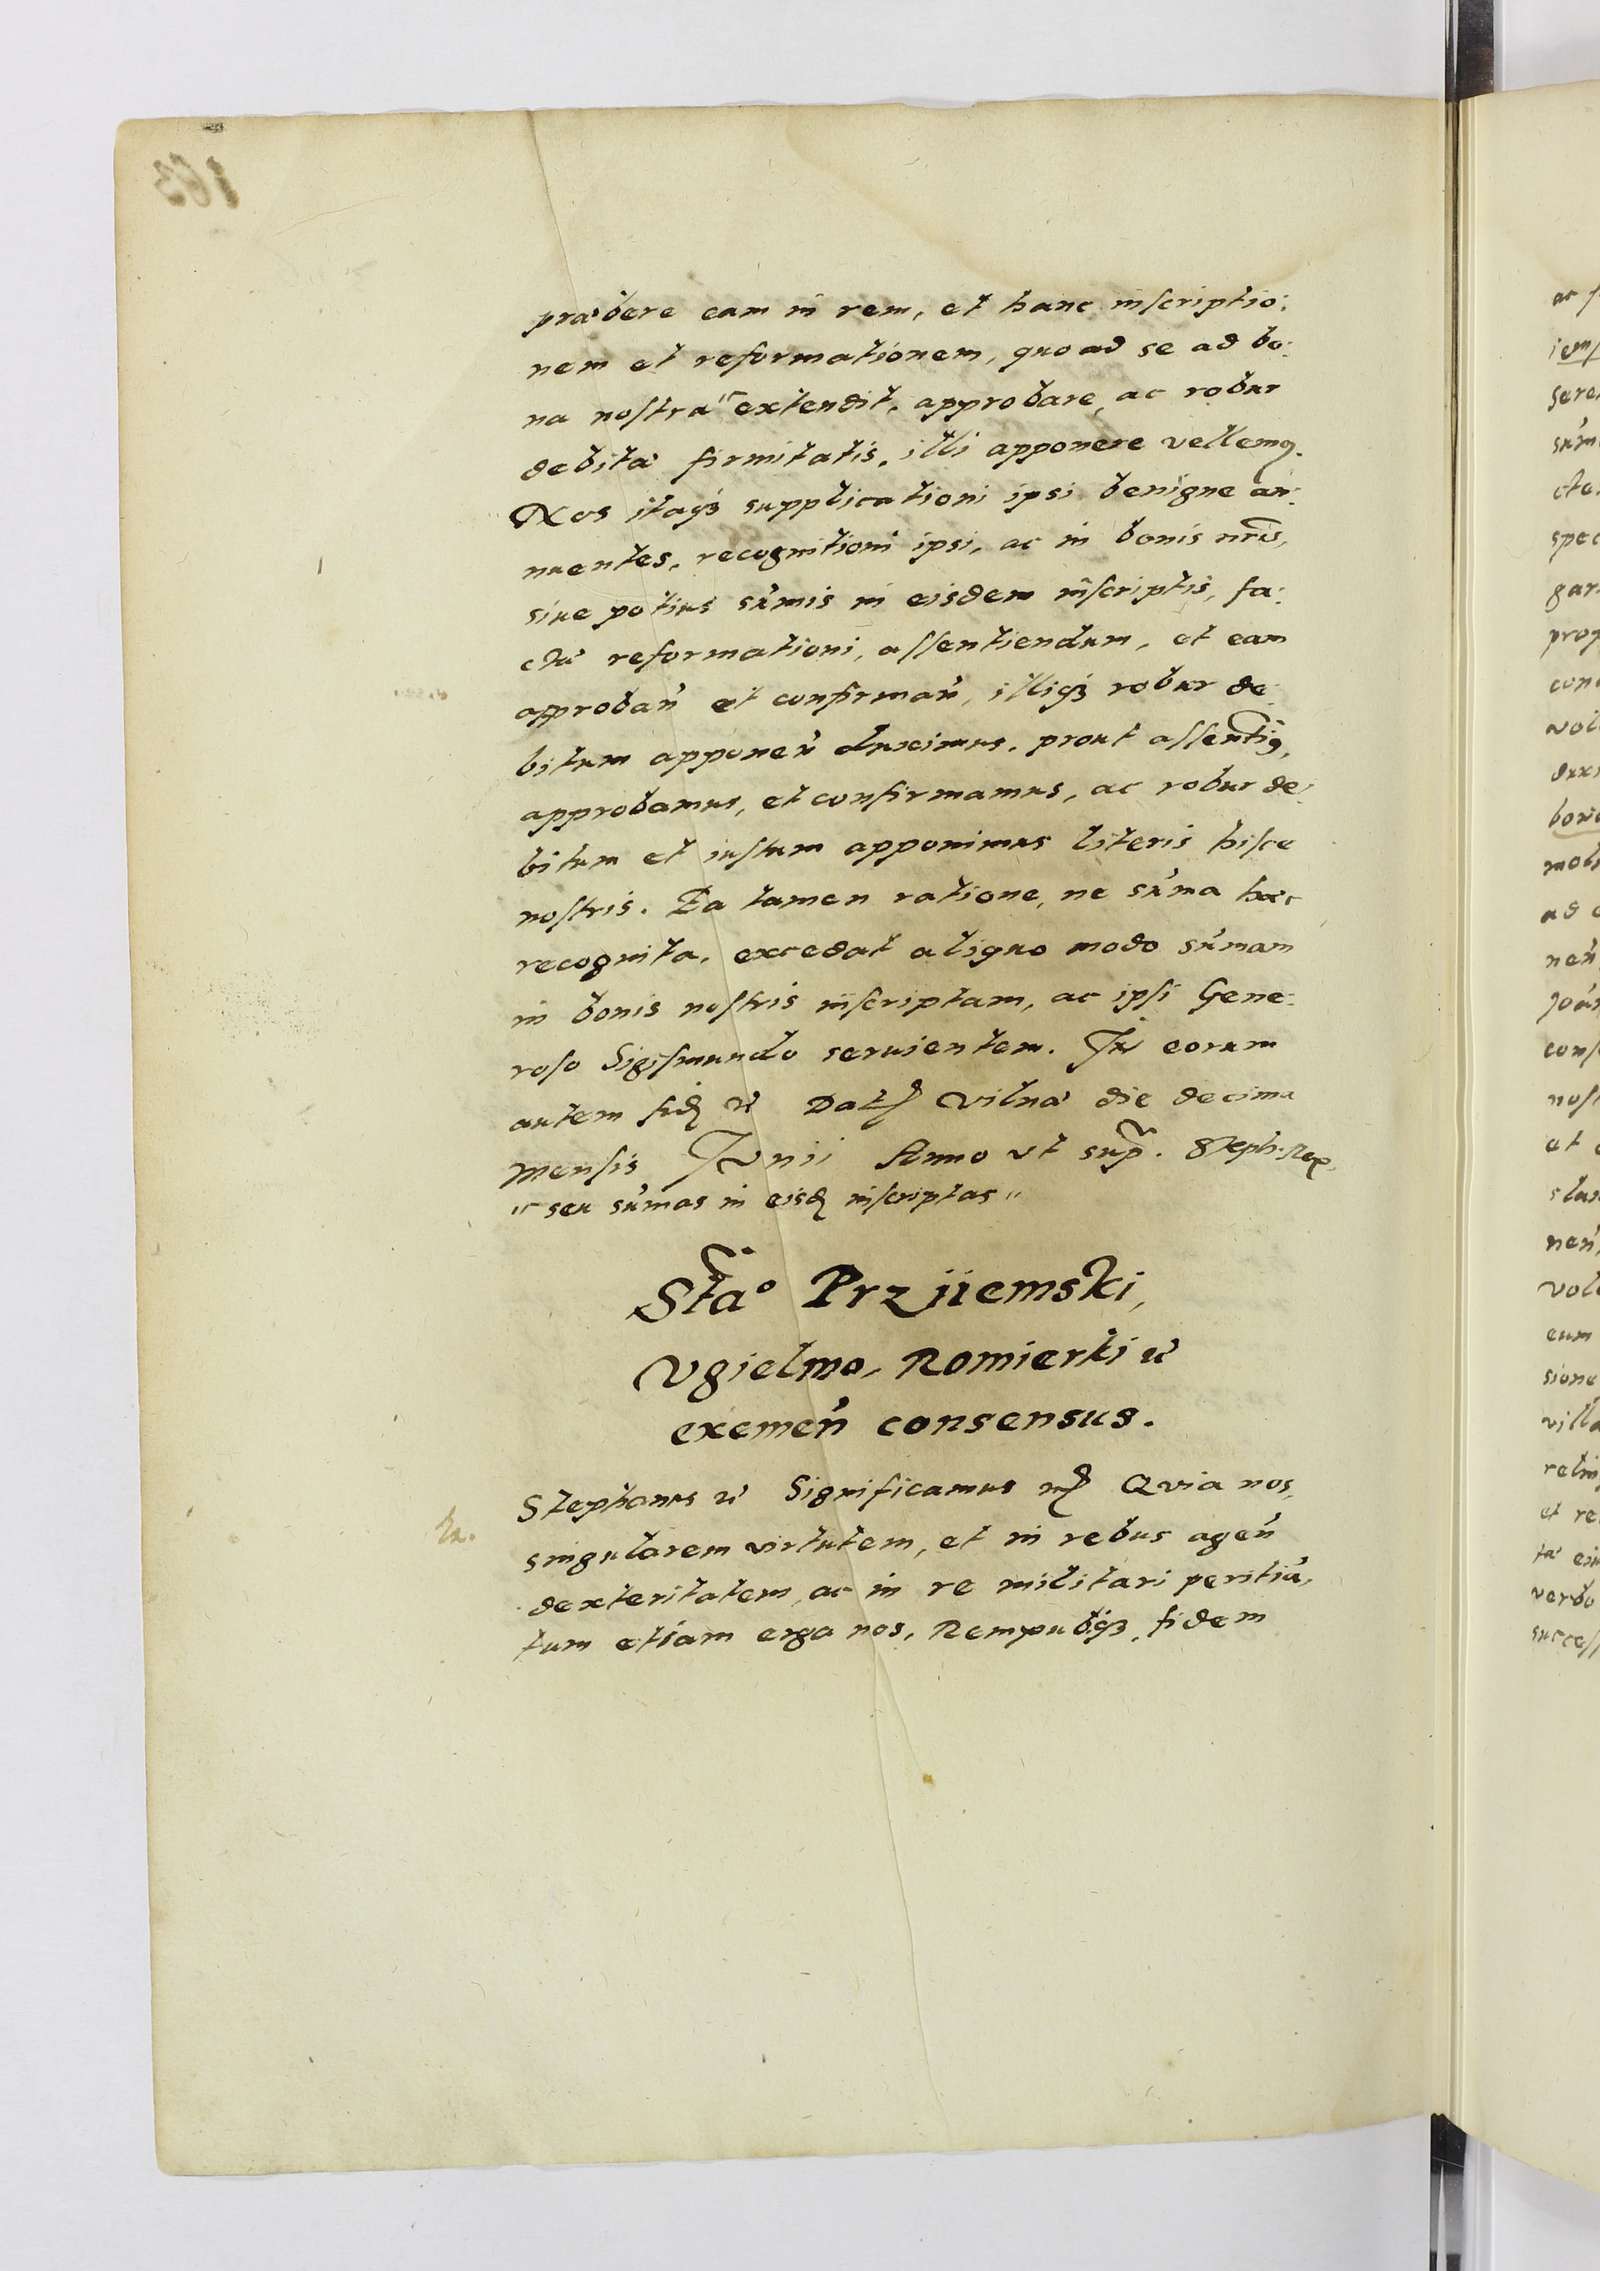 præbere eam in rem, et hanc inscriptio:
nem et reformationem, quoad se ad bo:
na nostra " extendit, approbare, ac robur
debitæ firmitatis, illi apponere vellemꝰ.
Nos itaqꝫ supplicationi ipsi benigne an:
nuentes, recognitioni ipsi, ac in bonis nr̃is,
siue potius sum̃is in eisdem inscriptis, fa:
ctæ reformationi, assentiendum, et eam
approban̄ et confirman̄, illiqꝫ robur de:
bitum apponen̄ duximus, prout assentimꝰ,
approbamus, et confirmamus, ac robur de:
bitum et iustum apponimus literis hisce
nostris. Ea tamen ratione, ne sum̃a hæc
recognita, excedat aliquo modo sum̃am
in bonis nostris inscriptam, ac ipsi Gene:
roso Sigismundo seruientem. In eorum
autem fidẽ etc̃ Datũ Vilnæ die decima
mensis Junii Anno vt supra. Steph. Rex.
" seu sum̃as in eisdẽ inscriptas "
Sta° Przjiemski,
Vgielmo, Romierki etc̃
exemen̄ consensus.
Stephanus etc̃ Significamus etc̃ Qvia nos,
singularem virtutem, et in rebus agen̄
dexteritatem, ac in re militari peritiã,
tum etiam erga nos, Rempubqꝫ, fidem